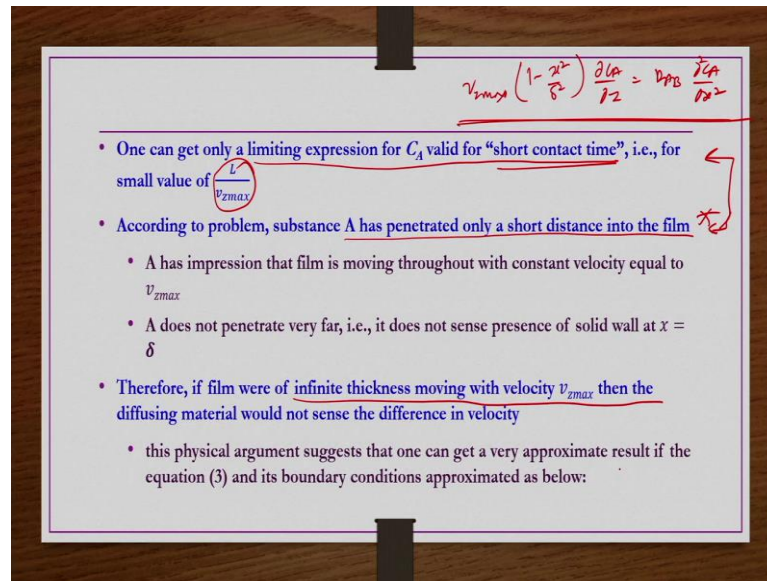 v_zmax (1 - x²/δ²) ∂C_A/∂z = D_AB ∂²C_A/∂x²
• One can get only a limiting expression for C_A valid for “short contact time”, i.e., for
small value of L/v_zmax
• According to problem, substance A has penetrated only a short distance into the film
• A has impression that film is moving throughout with constant velocity equal to
v_zmax
• A does not penetrate very far, i.e., it does not sense presence of solid wall at x =
δ
• Therefore, if film were of infinite thickness moving with velocity v_zmax then the
diffusing material would not sense the difference in velocity
• this physical argument suggests that one can get a very approximate result if the
equation (3) and its boundary conditions approximated as below: